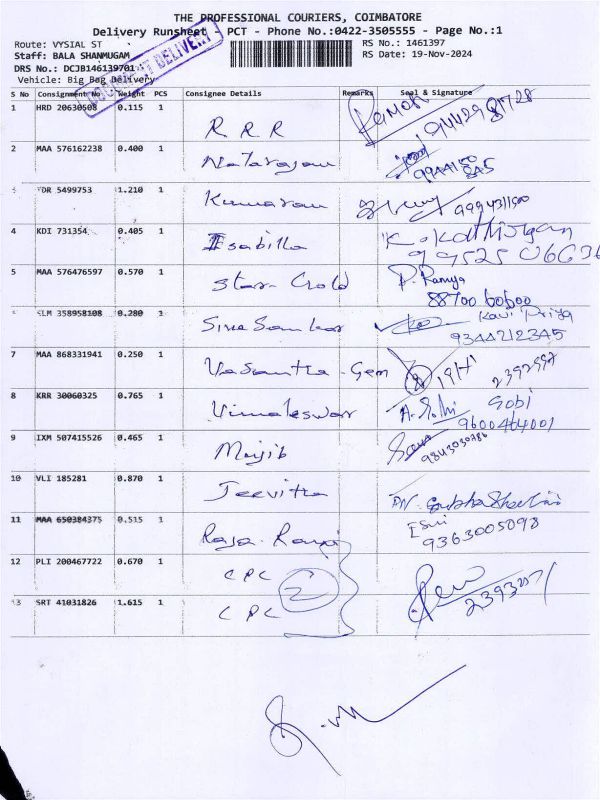 THE PROFESSIONAL COURIERS, COIMBATORE
Delivery Runsheet - PCT - Phone No.:0422-3505555 - Page No.:1
Route: VYSIAL ST RS No.: 1461397
Staff: BALA SHANMUGAM RS Date: 19-Nov-2024
DRS No.: DCJB146139701
Vehicle: Big Bag Delivery
DELIVERY
S No Consignment No Weight PCS Consignee Details Remarks Seal & Signature
1 HRD 20630508 0.115 1 R R R 9442981728
2 MAA 576162238 0.400 1 Natarajan
3 TDR 5499753 1.210 1 Kumaran
4 KDI 731354 0.405 1 Isabilla
5 MAA 576476597 0.570 1 Star Gold P. Ramya
88700 60600
6 SLM 358958108 0.280 1 Siva Sankar Kavi Priya
9344212345
7 MAA 868331941 0.250 1 Vasantha Gem
8 KRR 30060325 0.765 1 Vimaleswar Gobi
9600464001
9 IXM 507415526 0.465 1 Majib
10 VLI 185281 0.870 1 Jeevitha
11 MAA 650384375 0.515 1 Raja Rani
9363005098
12 PLI 200467722 0.670 1 CPC 2
13 SRT 41031826 1.615 1 CPC